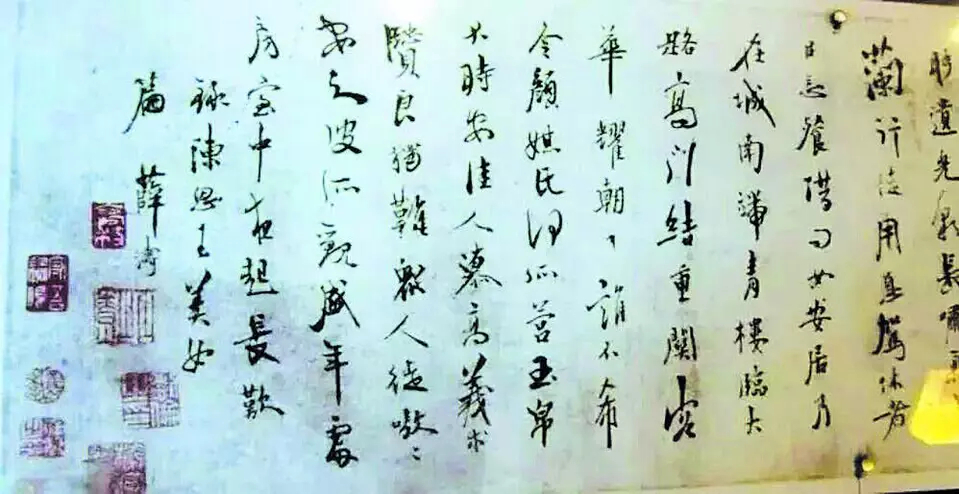 盼遺光采長嘯氣
蘭行徒用息駕休者
以忘餐借問女安居乃
在城南端青樓臨大
路高門結重關容
華耀朝日誰不希
令顏媒氏何所營玉帛
不時安佳人慕高義求
賢良獨難衆人徒嗷〻
安知彼所觀盛年處
房室中夜起長歎
錄陳思王美女
篇 薛濤